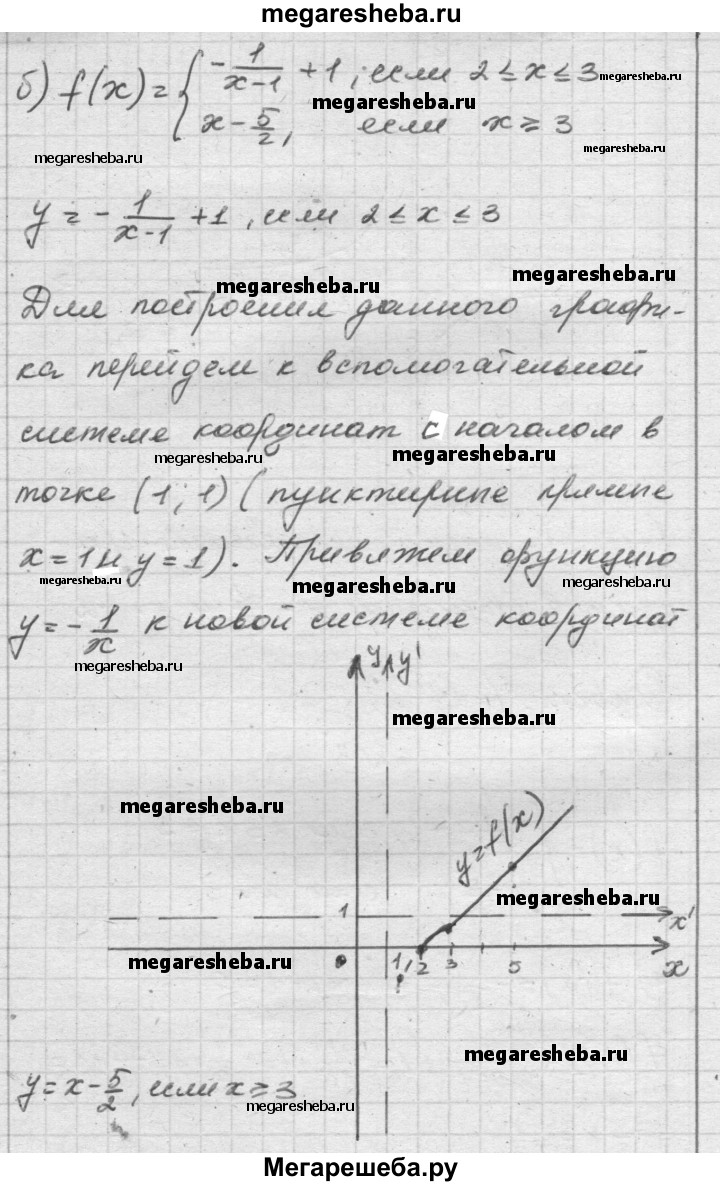 megaresheba.ru
б) f(x) = { -1/(x-1) + 1, если 2 ≤ x ≤ 3 megaresheba.ru
megaresheba.ru
x - 5/2, если x ≥ 3
megaresheba.ru megaresheba.ru
y = -1/(x-1) + 1, если 2 ≤ x ≤ 3
megaresheba.ru megaresheba.ru
Для построения данного графи-
ка перейдем к вспомогательной
системе координат с началом в
megaresheba.ru megaresheba.ru
точке (1; 1) (пунктирные прямые
x = 1 и y = 1). Привяжем функцию
megaresheba.ru megaresheba.ru megaresheba.ru
y = -1/x к новой системе координат
megaresheba.ru
y y'
megaresheba.ru
megaresheba.ru
y = f(x)
megaresheba.ru
1 x'
megaresheba.ru
1 2 3 5 x
megaresheba.ru
y = x - 5/2, если x ≥ 3
megaresheba.ru
Мегарешеба.ру